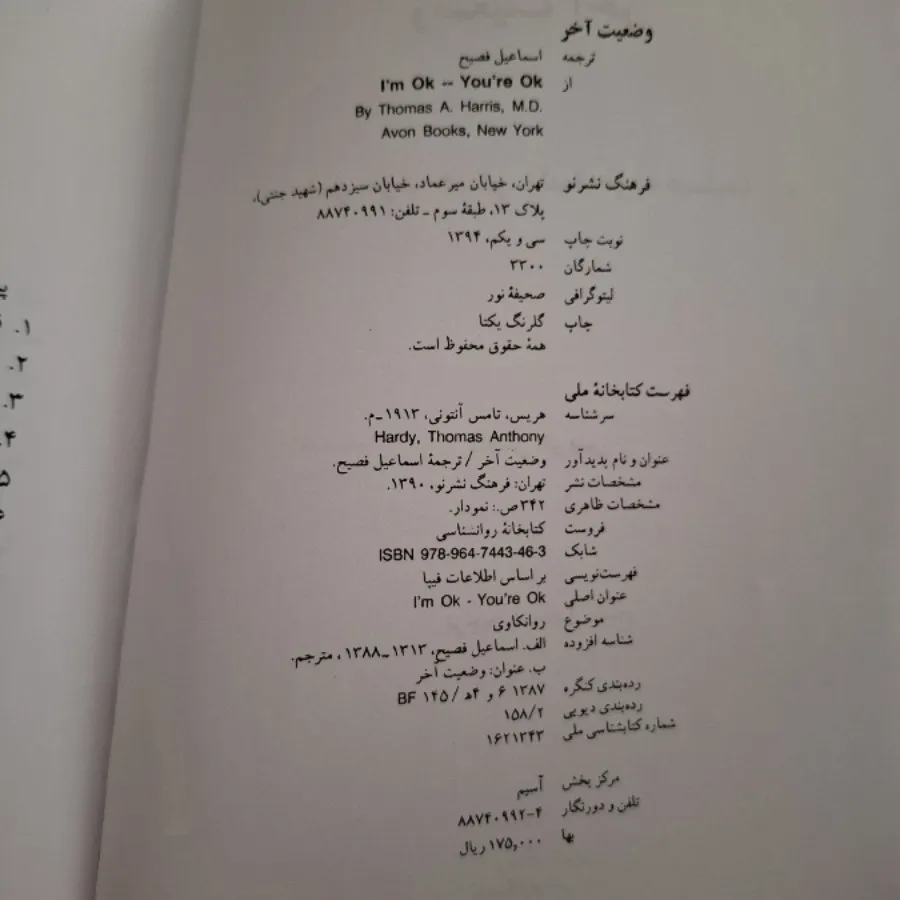 وضعیت آخر
ترجمه اسماعیل فصیح
از I'm Ok -- You're Ok
By Thomas A. Harris, M.D.
Avon Books, New York
فرهنگ نشرنو تهران، خیابان میرعماد، خیابان سیزدهم (شهید جنتی)،
پلاک ۱۳، طبقهٔ سوم ـ تلفن: ۸۸۷۴۰۹۹۱
نوبت چاپ سی و یکم، ۱۳۹۴
شمارگان ۳۳۰۰
لیتوگرافی صحیفهٔ نور
چاپ گلرنگ یکتا
همهٔ حقوق محفوظ است.
فهرست کتابخانهٔ ملی
سرشناسه هریس، تامس آنتونی، ۱۹۱۳ـ م.
Hardy, Thomas Anthony
عنوان و نام پدیدآور وضعیت آخر / ترجمهٔ اسماعیل فصیح.
مشخصات نشر تهران: فرهنگ نشرنو، ۱۳۹۰.
مشخصات ظاهری ۳۴۲ص.: نمودار.
فروست کتابخانهٔ روانشناسی
شابک ISBN 978-964-7443-46-3
فهرست‌نویسی بر اساس اطلاعات فیپا
عنوان اصلی I'm Ok - You're Ok
موضوع روانکاوی
شناسه افزوده الف. اسماعیل فصیح، ۱۳۱۳ـ۱۳۸۸، مترجم.
ب. عنوان: وضعیت آخر
رده‌بندی کنگره ۱۳۸۷ ۶ و ۴ه‍ / ۱۴۵ BF
رده‌بندی دیویی ۱۵۸/۲
شماره کتابشناسی ملی ۱۶۲۱۳۴۳
مرکز پخش آسیم
تلفن و دورنگار ۸۸۷۴۰۹۹۲-۴
بها ۱۷۵,۰۰۰ ریال
۱.
۲.
۳.
۴.
۵